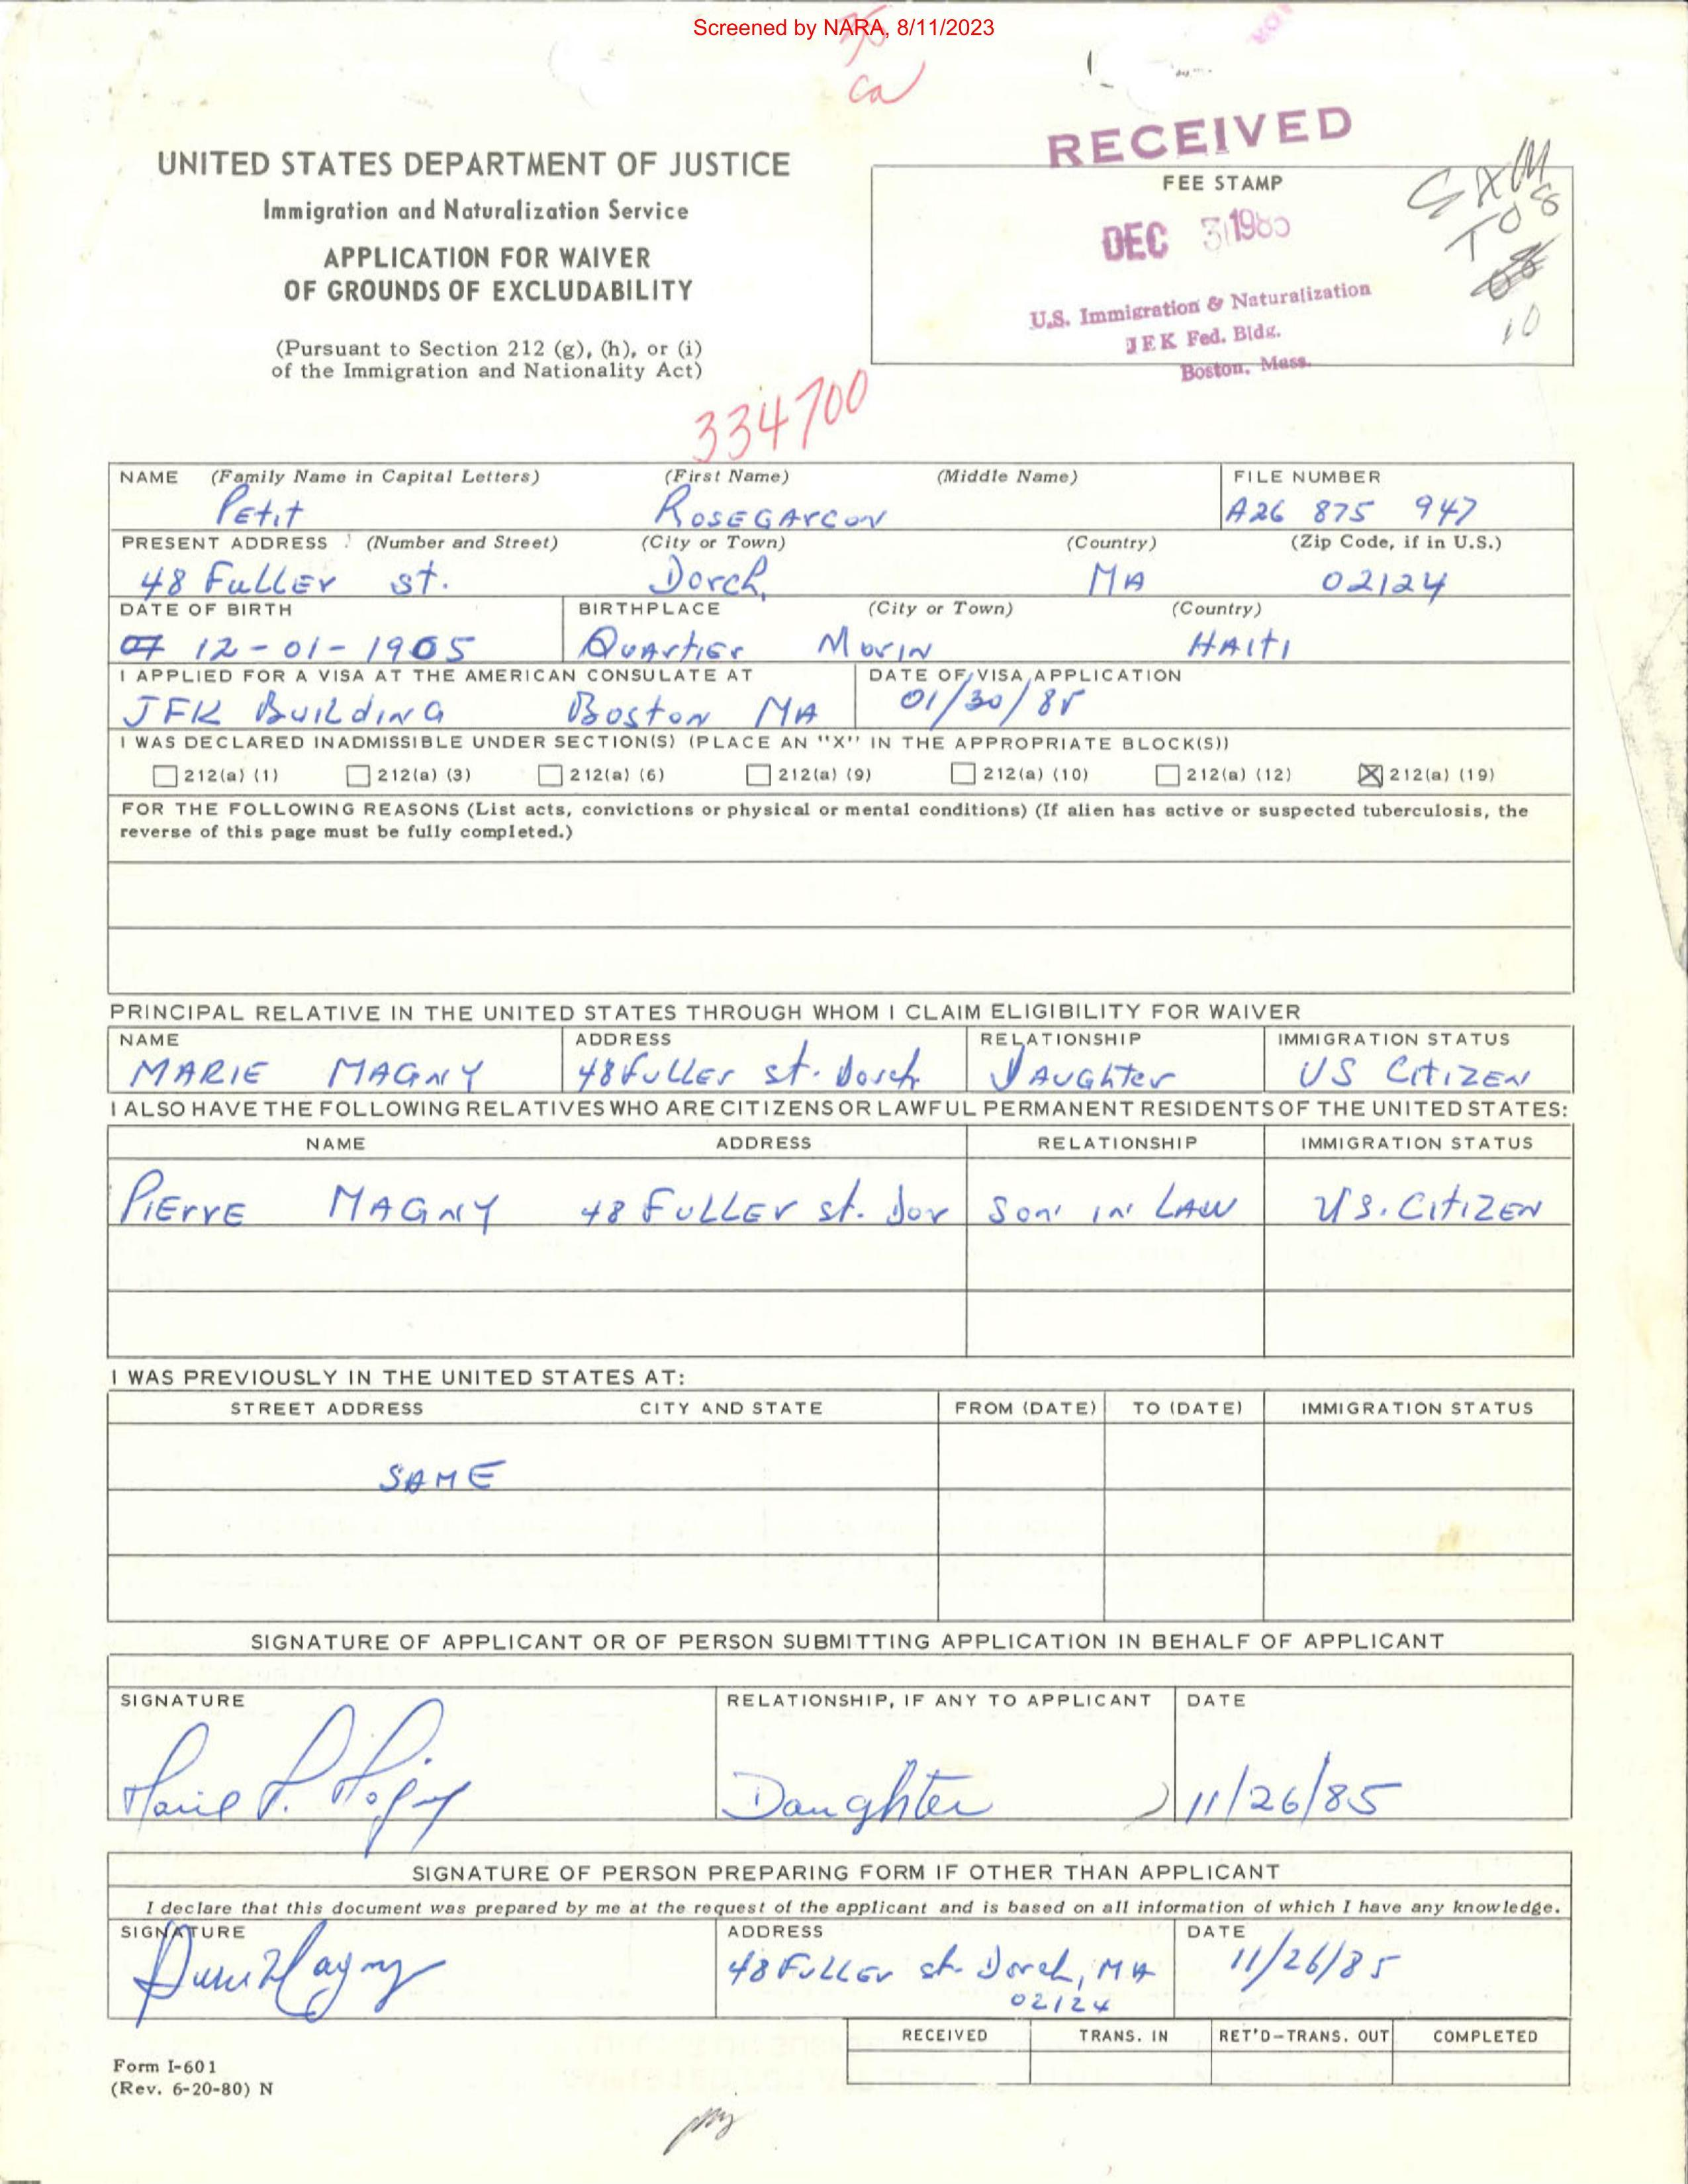 Screened by NARA, 8/11/2023
ca
RECEIVED
UNITED STATES DEPARTMENT OF JUSTICE
Immigration and Naturalization Service
APPLICATION FOR WAIVER
OF GROUNDS OF EXCLUDABILITY
(Pursuant to Section 212 (g), (h), or (i)
of the Immigration and Nationality Act)
FEE STAMP
DEC 31 1985
U.S. Immigration & Naturalization
JFK Fed. Bldg.
Boston, Mass.
SXM
TO 8
10
334700
NAME (Family Name in Capital Letters) (First Name) (Middle Name) FILE NUMBER
Petit ROSEGARCON A26 875 947
PRESENT ADDRESS (Number and Street) (City or Town) (Country) (Zip Code, if in U.S.)
48 Fuller st. Dorch, MA 02124
DATE OF BIRTH BIRTHPLACE (City or Town) (Country)
12-01-1905 Quartier Morin HAITI
I APPLIED FOR A VISA AT THE AMERICAN CONSULATE AT DATE OF VISA APPLICATION
JFK Building Boston MA 01/30/85
I WAS DECLARED INADMISSIBLE UNDER SECTION(S) (PLACE AN "X" IN THE APPROPRIATE BLOCK(S))
212(a) (1) 212(a) (3) 212(a) (6) 212(a) (9) 212(a) (10) 212(a) (12) X 212(a) (19)
FOR THE FOLLOWING REASONS (List acts, convictions or physical or mental conditions) (If alien has active or suspected tuberculosis, the
reverse of this page must be fully completed.)
PRINCIPAL RELATIVE IN THE UNITED STATES THROUGH WHOM I CLAIM ELIGIBILITY FOR WAIVER
NAME ADDRESS RELATIONSHIP IMMIGRATION STATUS
MARIE MAGNY 48 Fuller st. Dorch. DAUGHter US CitIZEN
I ALSO HAVE THE FOLLOWING RELATIVES WHO ARE CITIZENS OR LAWFUL PERMANENT RESIDENTS OF THE UNITED STATES:
NAME ADDRESS RELATIONSHIP IMMIGRATION STATUS
PiErrE MAGNY 48 FULLEr st. Dor Son in LAW U.S. CitIZEN
I WAS PREVIOUSLY IN THE UNITED STATES AT:
STREET ADDRESS CITY AND STATE FROM (DATE) TO (DATE) IMMIGRATION STATUS
SAME
SIGNATURE OF APPLICANT OR OF PERSON SUBMITTING APPLICATION IN BEHALF OF APPLICANT
SIGNATURE RELATIONSHIP, IF ANY TO APPLICANT DATE
Marie P. Magny Daughter 11/26/85
SIGNATURE OF PERSON PREPARING FORM IF OTHER THAN APPLICANT
I declare that this document was prepared by me at the request of the applicant and is based on all information of which I have any knowledge.
SIGNATURE ADDRESS DATE
Magny 48 FuLLEr st. Dorch, MA 11/26/85
02124
RECEIVED TRANS. IN RET'D-TRANS. OUT COMPLETED
Form I-601
(Rev. 6-20-80) N